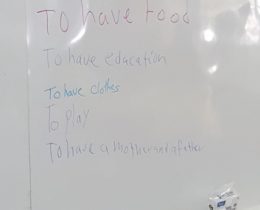 To have Food
To have education
To have clothes
To play
To have a mother and father